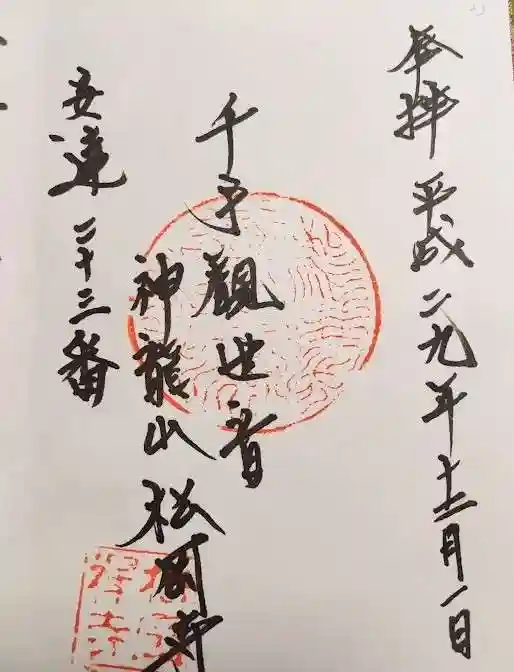 奉拝 平成二九年十二月一日
千手観世音
神龍山 松岡寺
安達三十三番